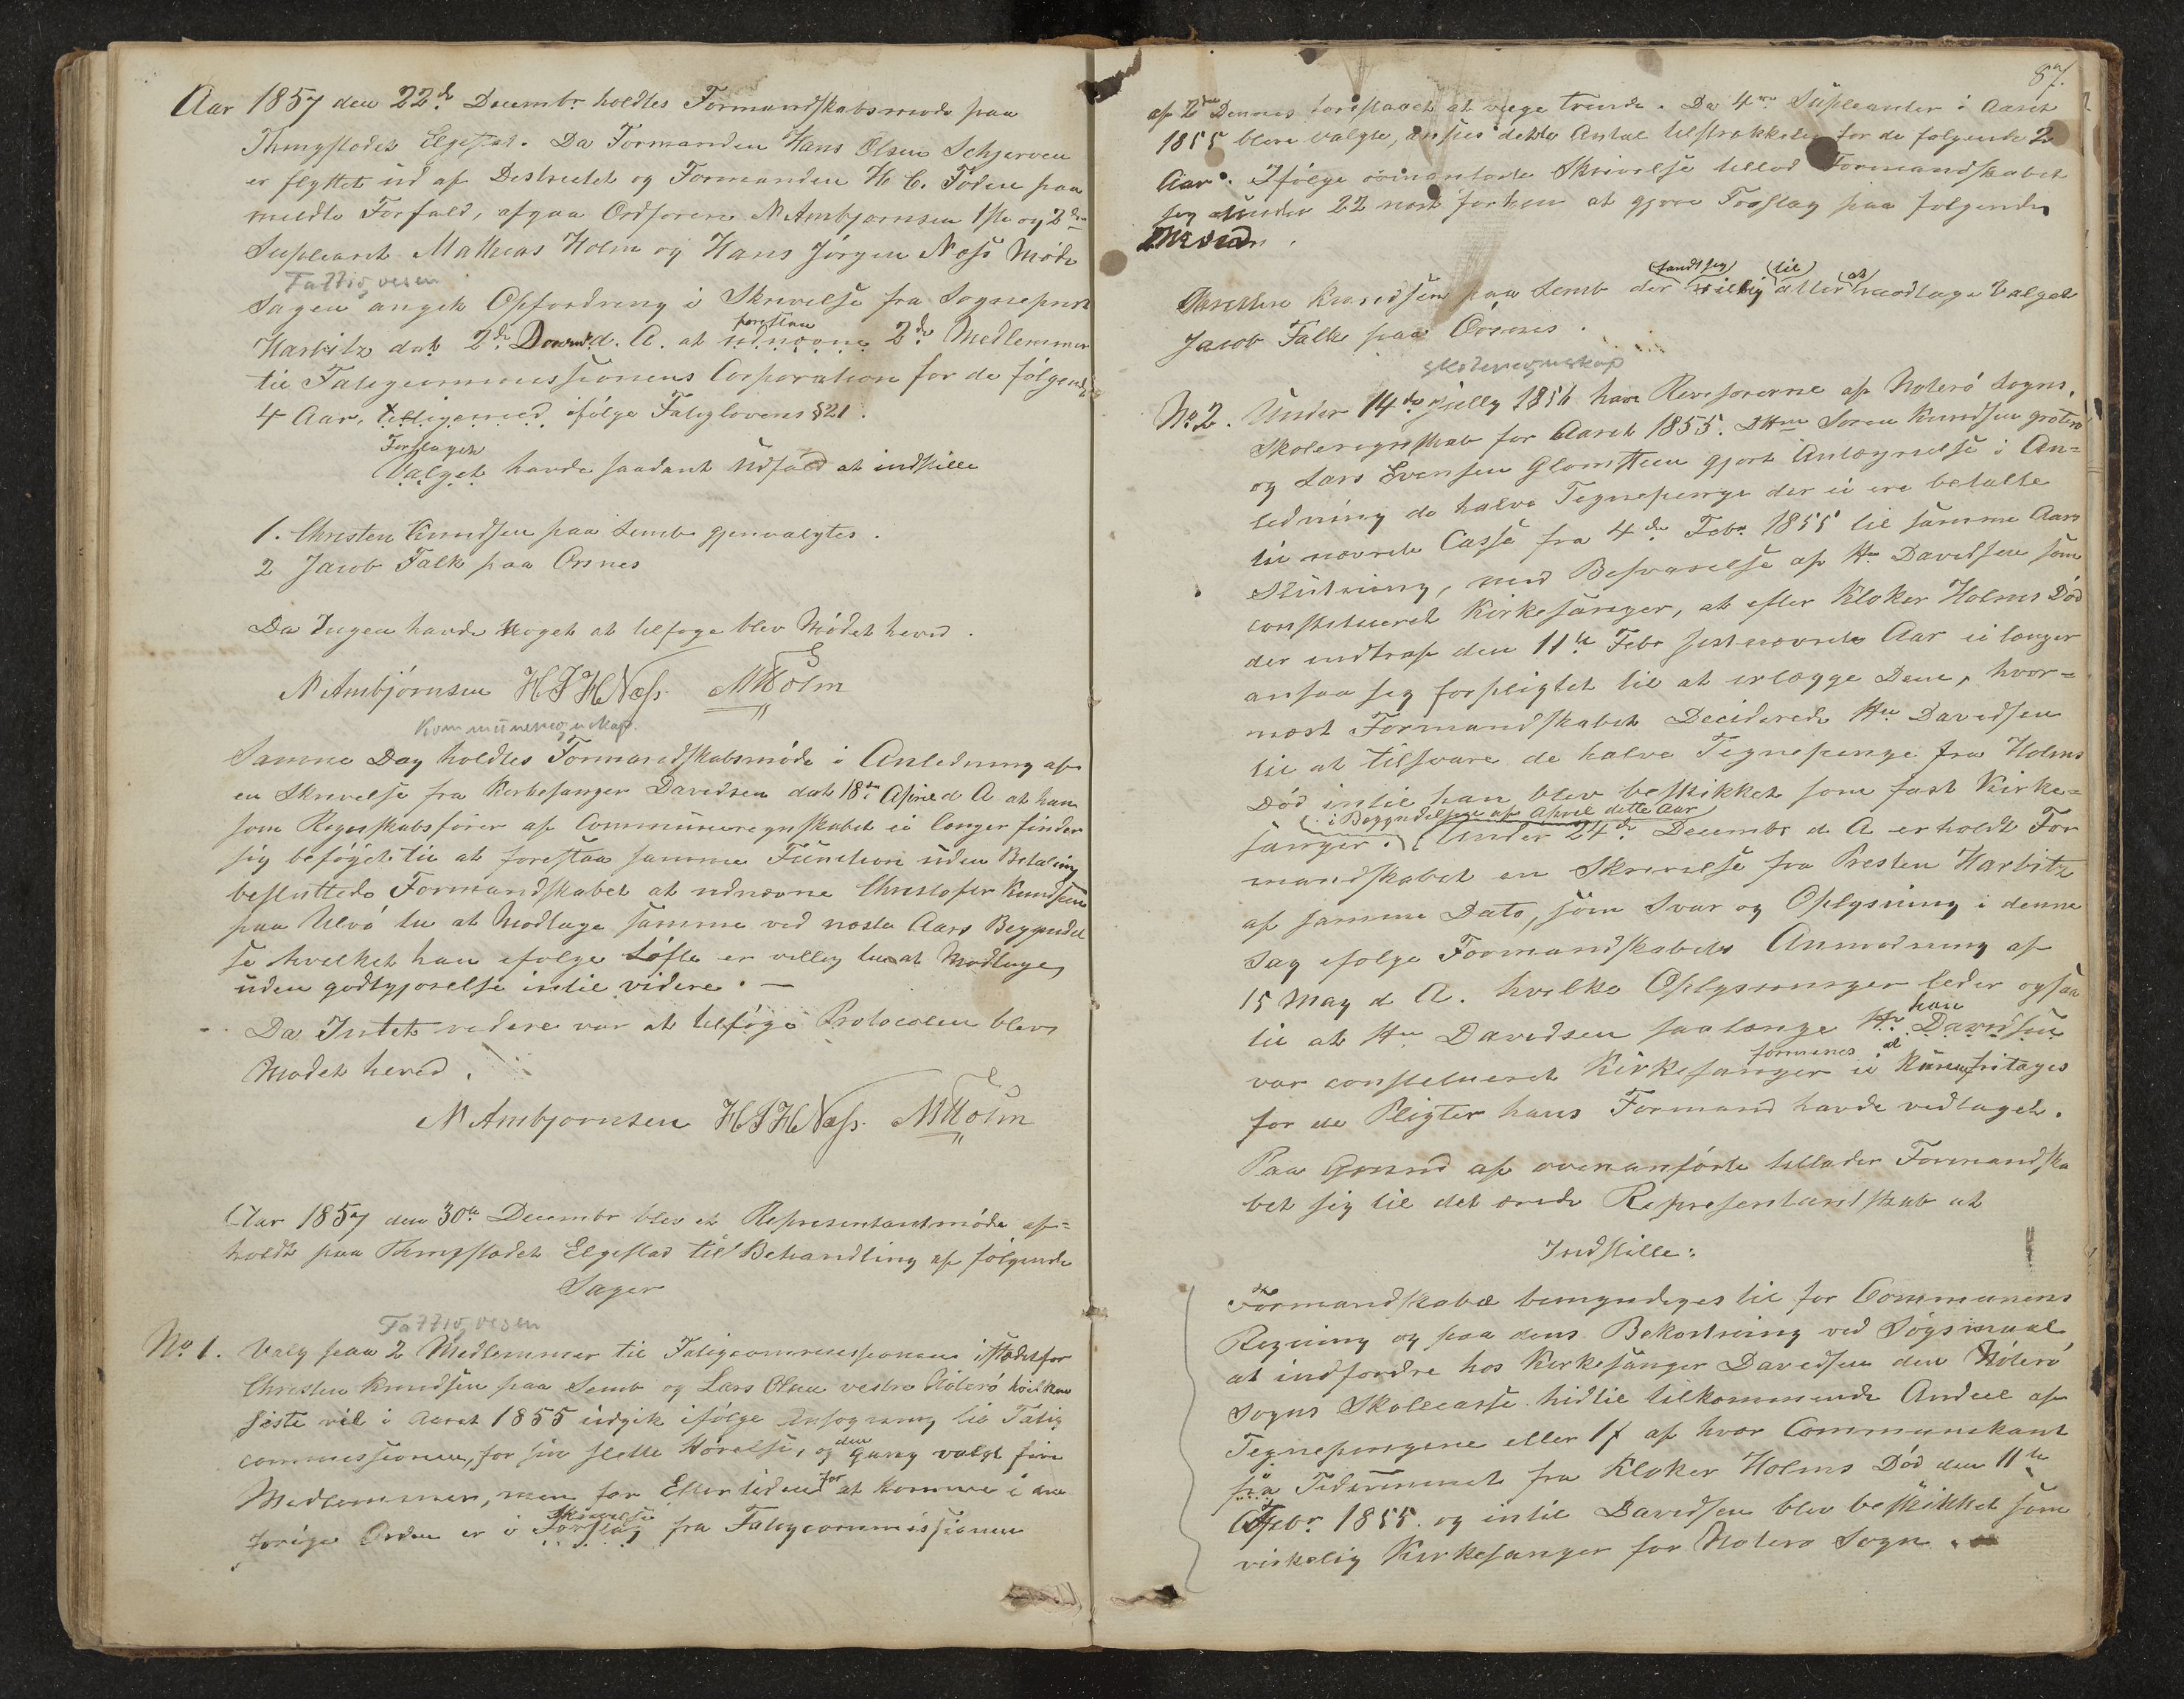 Aar 1857 den 22de Decembr holdtes Formandskabsmøde paa
Thingstedet Elgestad. Da Formanden Hans Olsen Schjerven
er flyttet ud af Destrectet og Formanden H. C. Foden paa
meldte Forfald, afgaa Ordføreren N Ambjørnsen 1ste og 2den
Supleant Mathias Holm og Hans Jørgen Næss Møde
Fattigvesen
Sagen angik Opfordring i Skrivelse fra Sogneprest
Harbitz dat 2de Decemb d. A. at udnævne 2de Medlemmer
forestaa
til Fatigcommissionens Corporation for de følgende
4 Aar, tilligemed ifølge Fatiglovens §21.
Forslaget
Valget havde saadant Udfald at indstille
1. Christen Knudsen paa Semb gjenvalgtes.
2 Jacob Falk paa Ørsnes
Da Ingen havde Noget at tilføge blev Mødet heved.
N Ambjørnsen HJHNæss. MHolm
Kommuneregnskap.
Samme Dag holdtes Formandskabsmøde i Anledning af
en Skrivelse fra Kirkesanger Davidsen dat 18de April d A at han
som Regnskabsfører af Communeregnskabet ei længer finder
sig beføget til at forestaa samme Function uden Betaling
besluttede Formandskabet at udnævne Christofer Knudsen
paa Ulvø til at Modtage samme ved næste Aars Begyndel
se hvilket han efølge Løfte er villig til at Modtage
uden godtgjørelse intil videre. —
Da Intet vedere var at tilføge Protocolen blev
Mødet heved.
N Ambjornsen HJHNæss. MHolm
Aar 1857 den 30te Decembr blev et Representantmøde af=
holdt paa Thingstedet Elgestad til Behandling af følgende
Sager
Fattigvesen
No 1. Valg paa 2 Medlemmer til Fatigcommissionen istædetfor
Christen Knudsen paa Semb og Lars Olsen vestre Nøterø hvilken
siste vel i Aaret 1855 udgik ifølge Ansøgning til Fatig
commissionen, for sin slette Hørelse, og den gang valgt fire
Medlemmer, men for Eftertiden for at komme i den
Skrivelse
forige Orden er i Forslag fra Fatigcommissionen
87.
af 2den Dennes foreslaaet at vælge trende. Da 4re Supleanter i Aaret
1855 bleve valgte, ansees dette Antal tilstrækkelig for de følgende 2
Aar. Ifølge ovenanførte Skrivelse tillod Formandskabet
sig under 22 næst forhen at gjøre Forslag paa følgende
Mænd.
fandt sig til at
Christen Knudsen paa Semb der villig atter modtage Valget
Jacob Falk paa Ørsnes.
Skoleregnskap
No 2. Under 14de Jully 1856 have Revisorerne af Nøterø Sogns,
Skoleregnskab for Aaret 1855. DHrr Søren Knudsen Grøterø
og Lars Evensen Glomsteen gjort Antegnelse i An=
ledning de halve Tegnepenge der ei ere betalte
til nævnte Casse fra 4de Febr 1855 til samme Aars
Slutning, med Besvarelse af Hr. Davidsen som
constitueret Kirkesanger, at efter Kloker Holms Død
der indtraf den 11te Febr sidstnævnte Aar ei længer
ansaa sig forpligtet til at erlægge Dem, hvor=
næst Formandskabet Deciderede Hr Davidsen
til at tilsvare de halve Tegnepenge fra Holms
Død intil han blev beskikket som fast Kirke=
i Begyndelsen af April dette Aar
sanger. Under 24de Decembr d A erholdt For
mandskabet en Skrivelse fra Presten Harbitz
af samme Dato, som Svar og Oplysning i denne
Sag efølge Formandskabets Anmodning af
15 May d A. hvilke Oplysninger leder ogsaa
han
til at Hr Davidsen saalænge Hr. Davidsen
formenes at
var constitueret Kirkesanger ei kunne fritages
for de Pligter hans Formand havde vedtaget.
Paa Grund af ovenanførte tillader Formandska
bet sig til det ærede Representantskab at
Indstille:
Formandskabet bemyndiges til for Communens
Regning og paa dens Bekostning ved Søgsmaal
at indfordre hos Kirkesanger Davidsen den Nøterø
Sogns Skolecasse hidtil tilkommende Andeel af
Tegnepengene eller 1 f af hver Communikant
fra Tidsrummet fra Kloker Holms Død den 11te
Febr 1855. og intil Davidsen blev beskikket som
virkelig Kirkesanger for Nøterø Sogn.